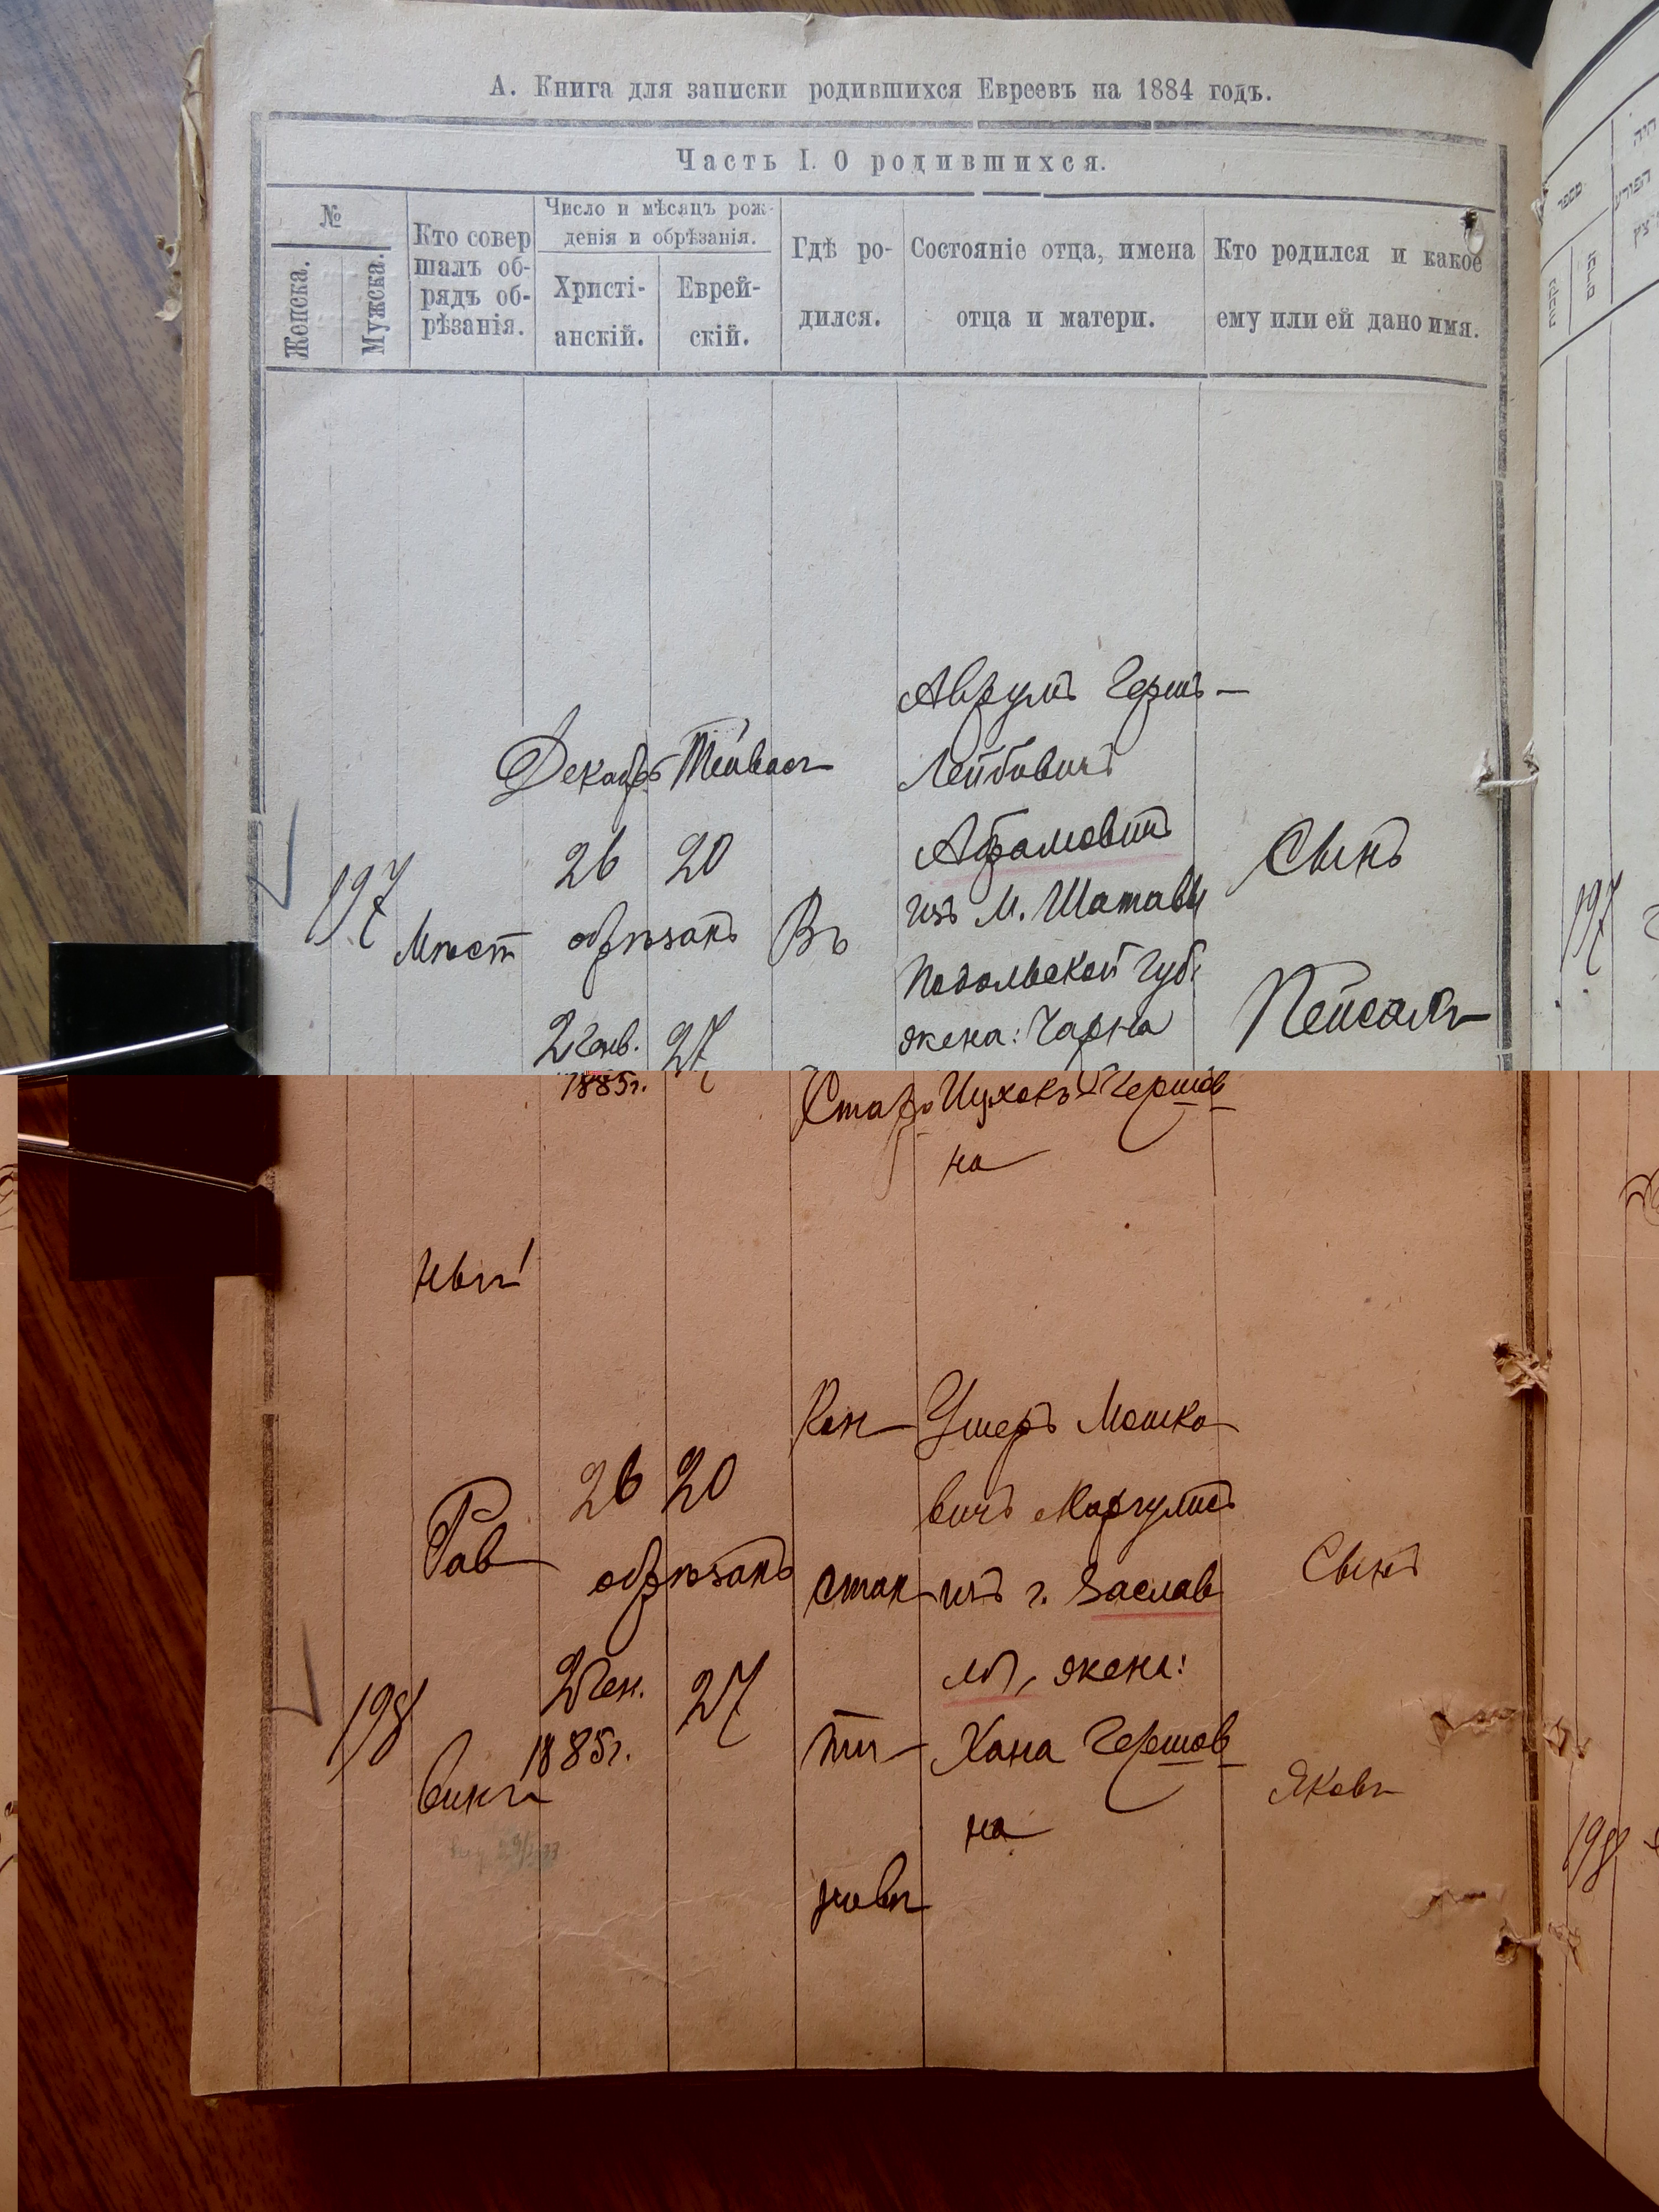 А. Книга для записки родившихся Евреевъ на 1884 годъ.
Часть I. О родившихся.
№
Женска.
Мужска.
Кто совер
шалъ об-
рядъ об-
рѣзанія.
Число и мѣсяцъ рож-
денія и обрѣзанія.
Христі-
анскій.
Еврей-
скій.
Гдѣ ро-
дился.
Состояніе отца, имена
отца и матери.
Кто родился и какое
ему или ей дано имя.
197
Мѣст
ный
Декабрь
26
обрѣзанъ
2 Генв.
1885г.
Тейвасъ
20
27
Въ
Старо
Аврумъ Герш-
Лейбовичъ
Абрамовичъ
изъ М. Шатавы
Подольской губ.
жена: Чарна
Ицхокъ-Гершов
на
Сынъ
Пейсахъ
197
198
Рав
винъ
26
обрѣзанъ
2 Ген.
1885г.
20
27
Кон-
стан-
ти-
новѣ
Ушеръ Мошко-
вичъ Маргулисъ
изъ г. Заслав
ля, жена:
Хана Гершов
на
Сынъ
Яковъ
198